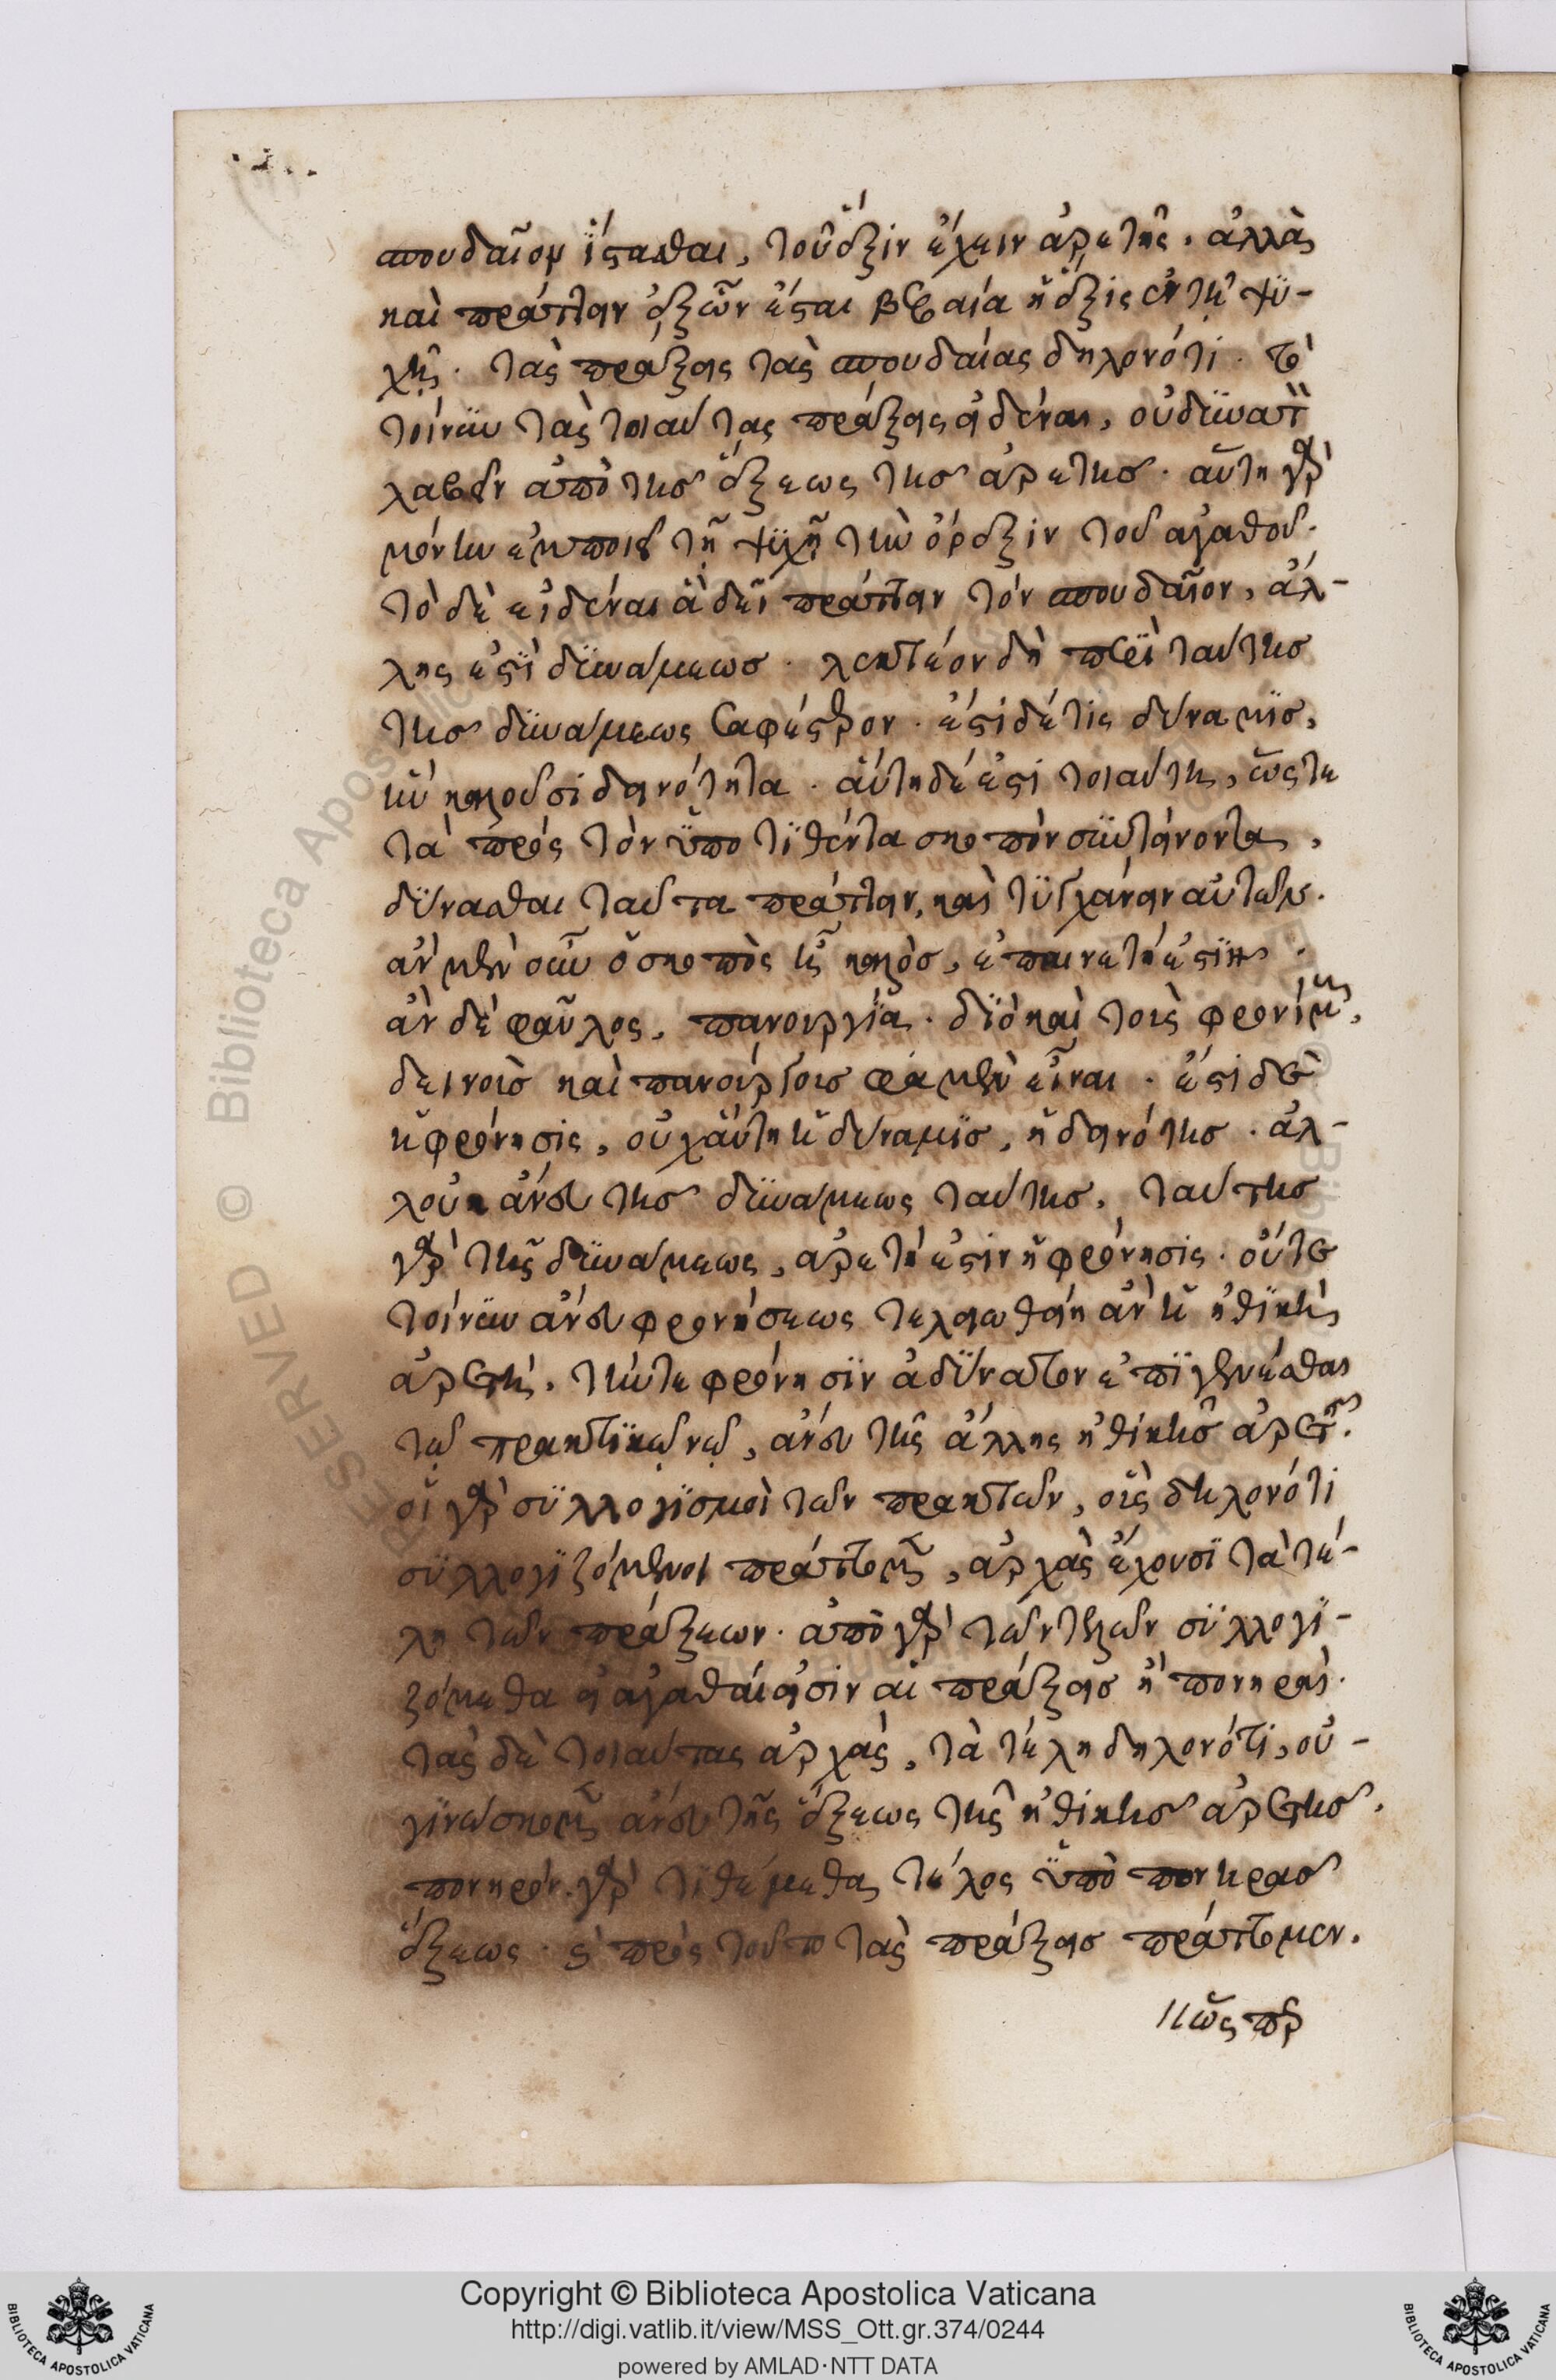 σπουδαῖον ἵστασθαι, τοῦ ἕξιν ἔχειν ἀρετῆς. ἀλλὰ
καὶ πράττειν ἐξ ὧν ἔσται βεβαία ἡ ἕξις ἐν τῇ ψυ-
χῇ. τὰς πράξεις τὰς σπουδαίας δηλονότι. τὸ
τοίνυν τὰς τοιαύτας πράξεις εἰδέναι, οὐ δύναταί
λαβεῖν ἀπὸ τῆς ἕξεως τῆς ἀρετῆς. αὕτη γὰρ
μόνην ἐμποιεῖ τῇ ψυχῇ τὴν ὄρεξιν τοῦ ἀγαθοῦ.
τὸ δὲ εἰδέναι ἃ δεῖ πράττειν τὸν σπουδαῖον, ἄλ-
λης ἐστὶ δυνάμεως. λεκτέον δὴ περὶ ταύτης
τῆς δυνάμεως σαφέστερον. ἔστι δέ τις δύναμις,
ἣν καλοῦσι δεινότητα. αὕτη δέ ἐστι τοιαύτη, ὥστε
τὰ πρὸς τὸν ὑποτιθέντα σκοπὸν συντείνοντα,
δύνασθαι ταῦτα πράττειν, καὶ τυγχάνειν αὐτῶν.
ἂν μὲν οὖν ὁ σκοπὸς ᾖ καλὸς, ἐπαινετή ἐστιν.
ἂν δὲ φαῦλος, πανουργία. διὸ καὶ τοὺς φρονίμους,
δεινοὺς καὶ πανούργους φαμὲν εἶναι. ἔστι δὲ
ἡ φρόνησις, οὐχ αὕτη ἡ δύναμις, ἡ δεινότης. ἀλ-
λ' οὐκ ἄνευ τῆς δυνάμεως ταύτης. ταύτης
γὰρ τῆς δυνάμεως, ἀρετή ἐστιν ἡ φρόνησις. οὔτε
τοίνυν ἄνευ φρονήσεως τελειωθείη ἂν ἡ ἠθικὴ
ἀρετή. τήν τε φρόνησιν ἀδύνατον ἐπιγενέσθαι
τῷ πρακτικῷ νῷ, ἄνευ τῆς ἄλλης ἠθικῆς ἀρετῆς.
οἱ γὰρ συλλογισμοὶ τῶν πρακτῶν, οἷς δηλονότι
συλλογιζόμενοι πράττομεν, ἀρχὰς ἔχουσι τὰ τέ-
λη τῶν πράξεων. ἀπὸ γὰρ τῶν τελῶν συλλογι-
ζόμεθα εἰ ἀγαθαί εἰσιν αἱ πράξεις ἢ πονηραί.
τὰς δὲ τοιαύτας ἀρχὰς, τὰ τέλη δηλονότι, οὐ
γινώσκομεν ἄνευ τῆς ἕξεως τῆς ἠθικῆς ἀρετῆς.
πονηρὸν γὰρ τιθέμεθα τέλος ὑπὸ πονηρᾶς
ἕξεως. καὶ πρὸς τοῦτο τὰς πράξεις πράττομεν.
ὥσπερ